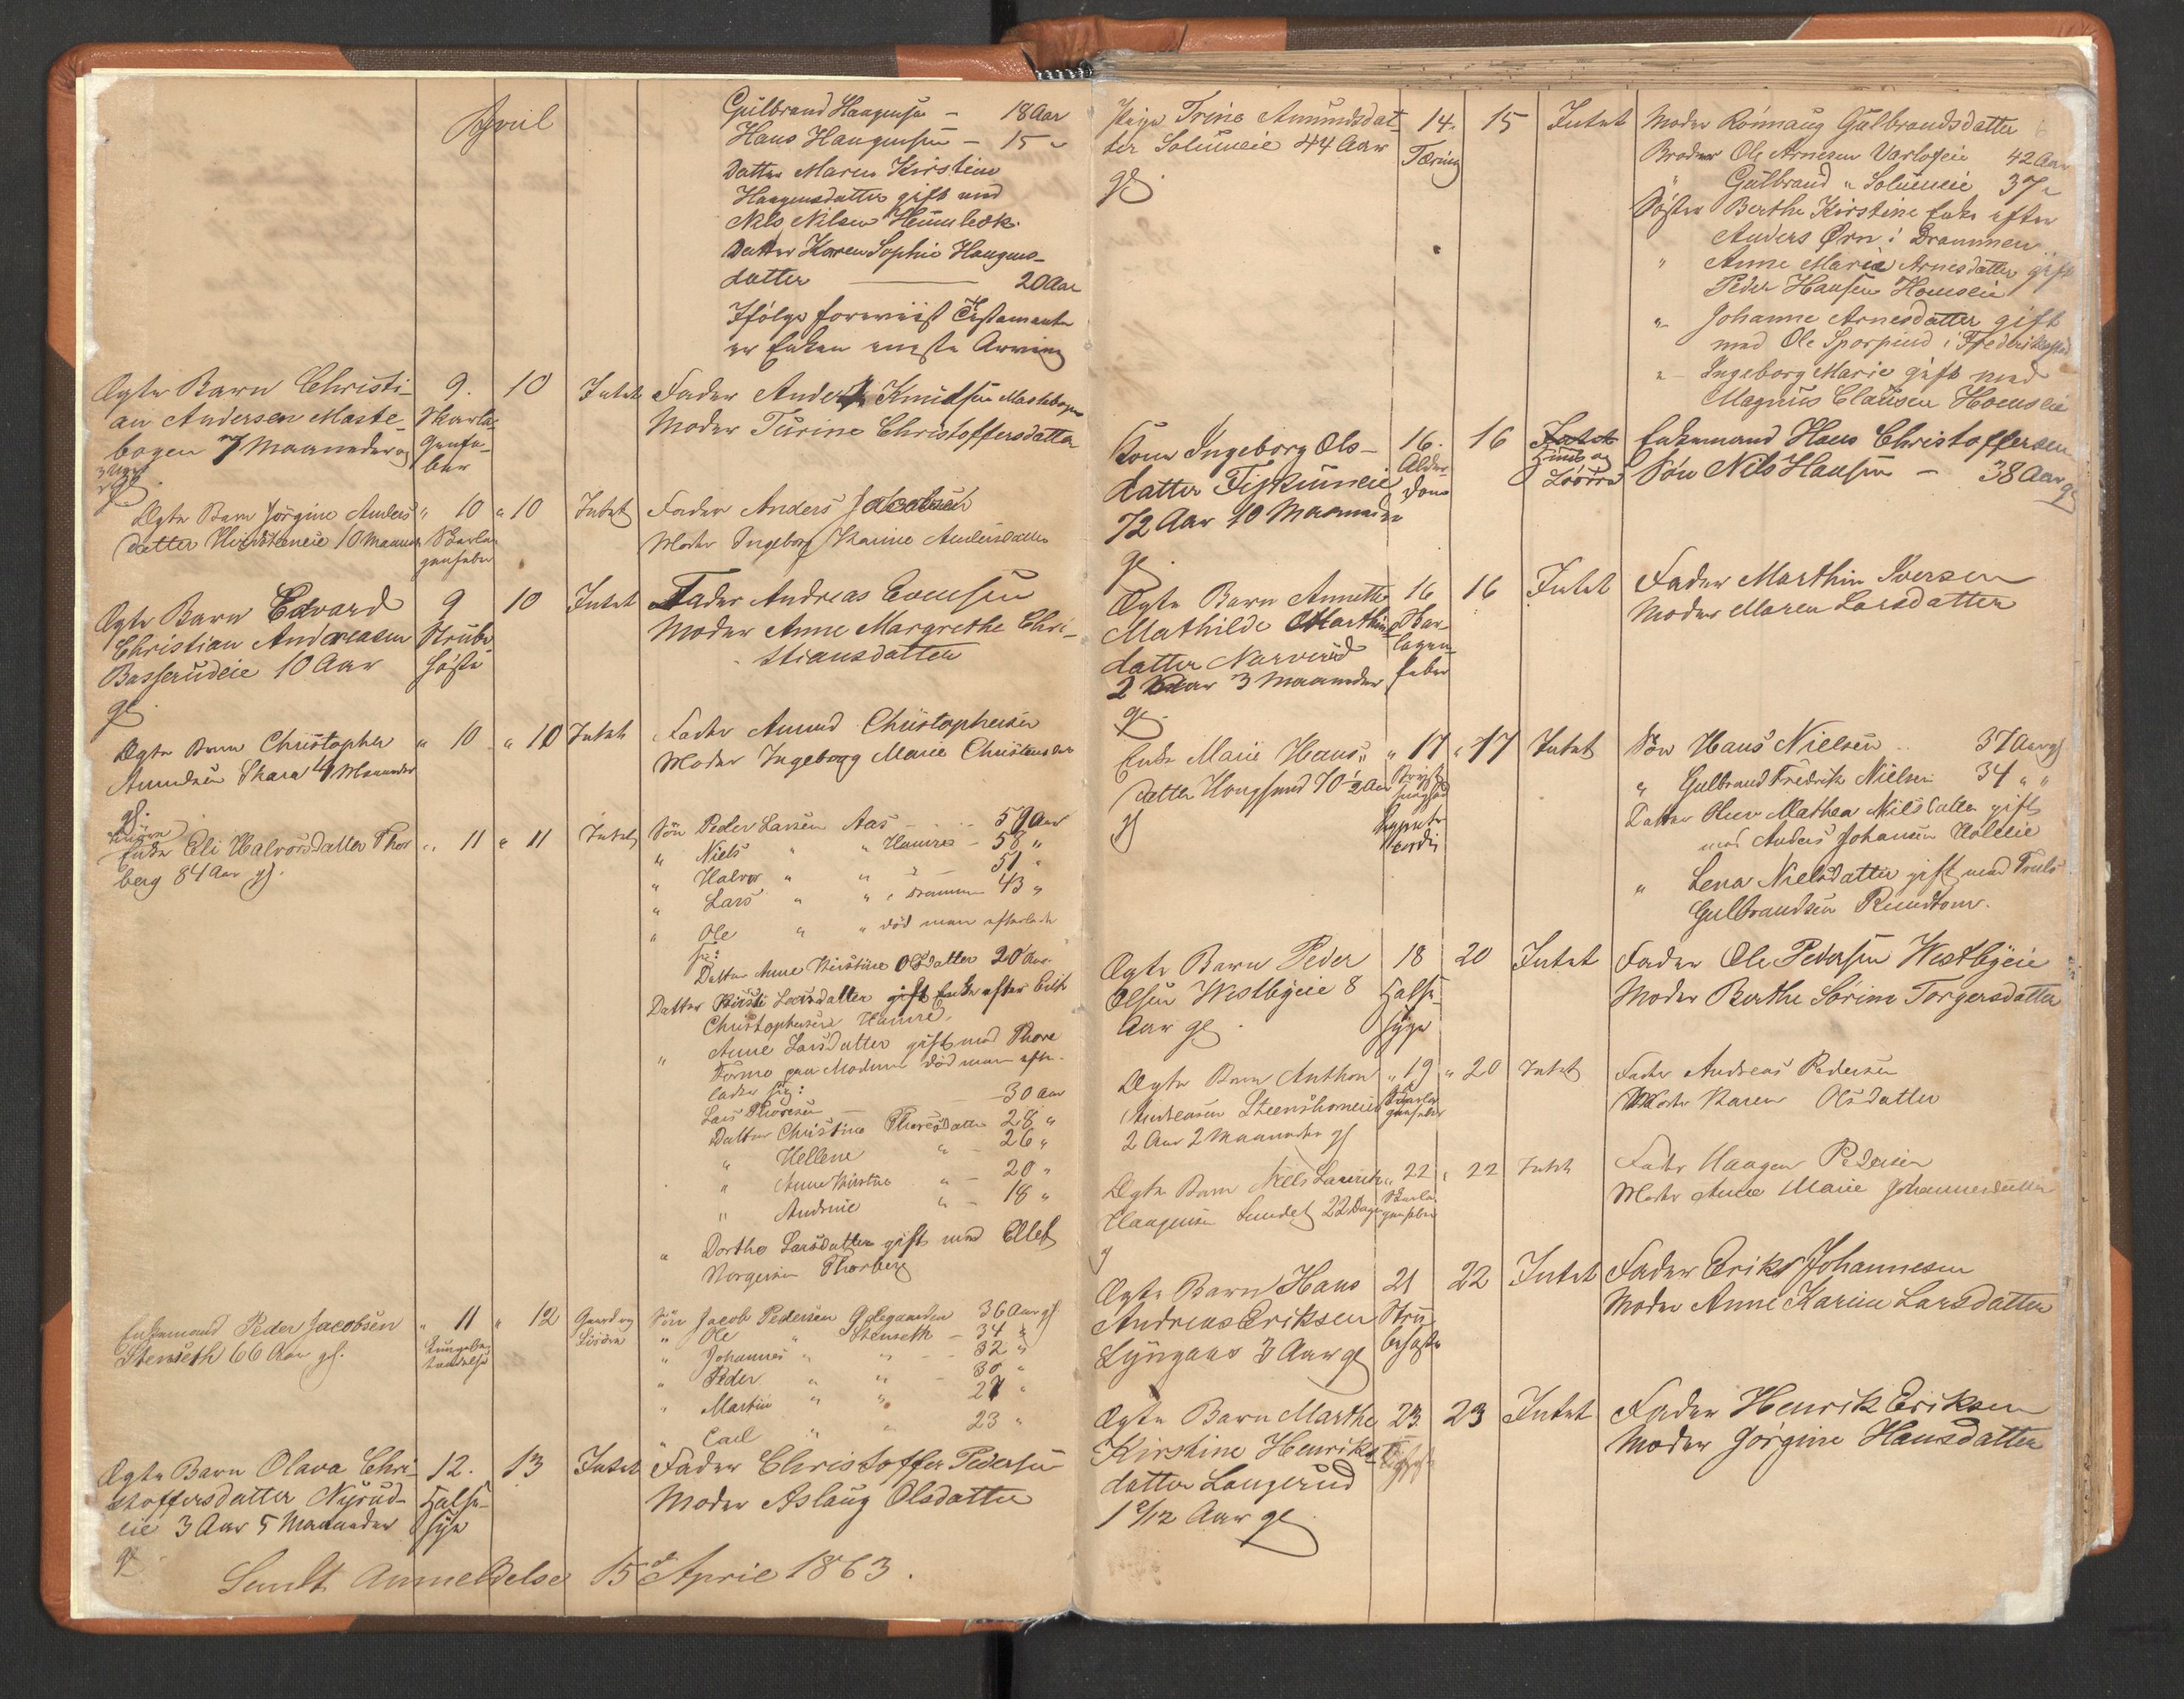 April
Gulbrand Haagensen - 18 Aar
Hans Haagensen - 15 "
Datter Maren Kirstine
Haagensdatter gift med
Nils Nilsen
Datter Karen Sophie Haagens-
datter 20 Aar
Ifølge foreviist Testamente
er Enken eneste Arving
Ægte Barn Christi- 9. 10 Intet Fader Anders Knudsen Mastebogen
an Andersen Maste- Skarla- Moder Turine Christoffersdatter
bogen 7 Maaneder og gensfe-
3 Uger ber
gl
Ægte Barn Jørgine Anders " 10 " 10 Intet Fader Anders Jacobsen
datter 10 Maaneder Skarla- Moder Ingeborg Karine Andersdatter
gensfeber
Ægte Barn Edvard 9 10 Intet Fader Andreas Evensen
Christian Andreassen Strube- Moder Anne Margrethe Chri-
Basserudeie 10 Aar hoste stiansdatter
gl
Ægte Barn Christopher " 10 " 10 Intet Fader Amund Christophersen
Amundsen Skara 4 Maaneder Moder Ingeborg Marie
gl.
Enke Eli Halvorsdatter Thor " 11 " 11 Intet Søn Peder Larsen Aas - 59 Aar
berg 84 Aar gl. " Niels " " - 58 "
" Halvor " " 51 "
" Lars " " i Drammen 43 "
" Ole " " død men efterlader
sig:
Datter Anne Kirstine Olsdatter 20 Aar
Datter Kirsti Larsdatter gift Enke efter
Christophersen
" Anne Larsdatter gift med Thore
paa Modum død men efter-
lader sig:
Lars Thoresen - 30 Aar
Datter Christine Thoresdatter 28 "
" Hellene " - 26 "
" Anne Kirstine " - 20 "
" Andrine " - 18 "
" Dorthe Larsdatter gift med Ellef
Thorberg
Enkemand Peder Jacobsen " 11 " 12 Gaard og Søn Jacob Pedersen 36 Aar gl
Stenseth 66 Aar gl. Lungebe- Løsøre " Ole " Stenseth - 34 "
tændelse " Johannes " " - 32 "
" Peder " " - 30 "
" Martin " " 27 "
" Carl " " 23 "
Ægte Barn Olava Chri- 12. 13 Intet Fader Christoffer Pedersen
stoffersdatter Nyrud- Halse- Moder Aslaug Olsdatter
eie 3 Aar 5 Maaneder syge
gl.
Sendt Anmeldelse 15de April 1863.
Pige Trine Amundsdat- 14. 15 Intet Moder Rønnaug Gulbrandsdatter
ter Solumeie 44 Aar Tæring Broder Ole Arnesen 42 Aar
gl. " Gulbrand " Solumeie 37 "
Søster Berthe Kirstine Enke efter
Anders Ørn i Drammen
" Anne Maria Arnesdatter gift
Peder Hansen Horneie
" Johanne Arnesdatter gift
med Ole i Frederikstad
" Ingeborg Marie gift med
Magnus Clausen
Kone Ingeborg Ols- 16. 16 Intet Enkemand Hans Christoffersen
datter Fiskumeie Alder- Huus og Søn Nils Hansen - 38 Aar gl
72 Aar 10 Maaneder dom Løsøre
gl.
Ægte Barn Annethe 16 16 Intet Fader Marthin Iversen
Mathilde Marthins- Skar- Moder Maren Larsdatter
datter Narverud lagens-
2 Aar 3 Maaneder feber
gl.
Enke Marie Hans- " 17 " 17 Intet Søn Hans Nielsen 37 Aar gl
datter Hougsund 70 1/2 Aar Bryst- " Gulbrand Fredrik Nielsen 34 " "
gl Datter Mathea Nilsdatter gift
med Anders Johansen
" Lena Nielsdatter gift med Truls
Gulbrandsen
Ægte Barn Peder 18 20 Intet Fader Ole Pedersen Westbyeie
Olsen Westbyeie 8 Halse- Moder Berthe Sørine Torgersdatter
Aar gl. syge
Ægte Barn Anthon " 19 " 20 Intet Fader Andreas Pedersen
Andreasen Skarla- Moder Karen Olsdatter
2 Aar 2 Maaneder gl gensfeber
Ægte Barn Niels Laurits " 22 " 22 Intet Fader Haagen Pedersen
Haagensen Sundet 22 Dage Skarla- Moder Anne Marie Johannesdatter
gl gensfeber
Ægte Barn Hans 21 22 Intet Fader Erik Johannesen
Andreas Eriksen Stru- Moder Anne Karine Larsdatter
Lyngaas 3 Aar gl behoste
Ægte Barn Marthe 23 23 Intet Fader Henrik Eriksen
Kirstine Henriks- Moder Jørgine Hansdatter
datter Langerud
1 2/12 Aar gl